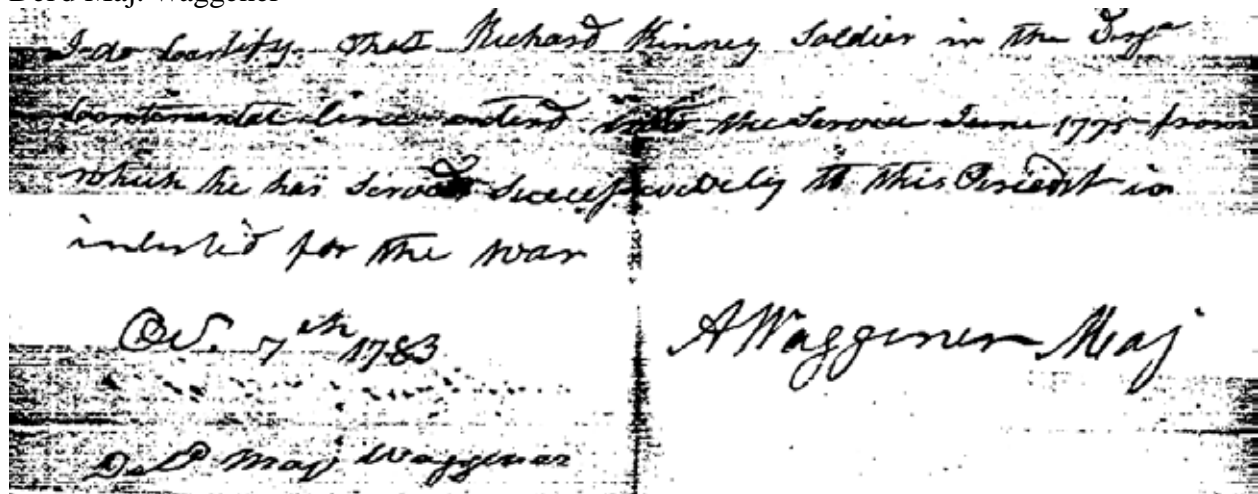 Del'd Maj. Waggener
I do Certify that Richard Kinney Soldier in the Virga
Continental line enterd into the Service June 1775 from
which he has Served Successively to this Period & is
inlisted for the war
Oct. 7th 1783
A Waggener Maj
Deld Maj Waggener